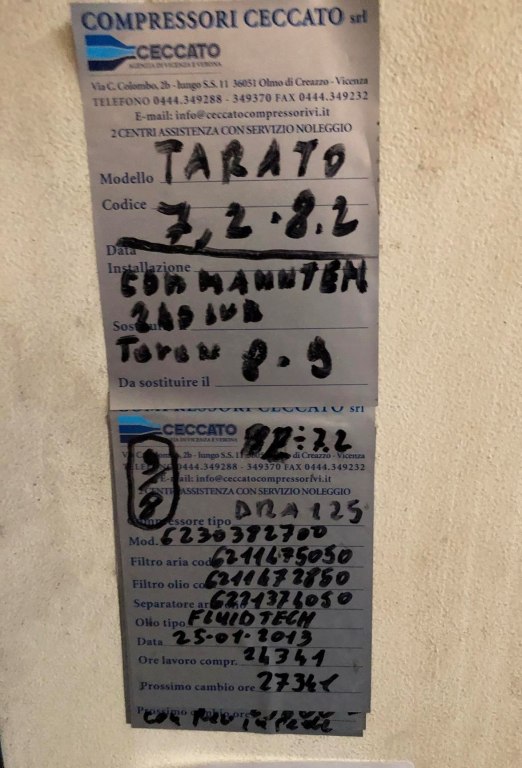 COMPRESSORI CECCATO srl
CECCATO
AGENZIA DI VICENZA E VERONA
Via C. Colombo, 2b - lungo S.S. 11 36051 Olmo di Creazzo - Vicenza
TELEFONO 0444.349288 - 349370 FAX 0444.349232
E-mail: info@ceccatocompressorivi.it
2 CENTRI ASSISTENZA CON SERVIZIO NOLEGGIO
Modello TARATO
Codice 7,2 - 8.2
Data
Installazione
8.9
Da sostituire il
COMPRESSORI CECCATO srl
CECCATO
AGENZIA DI VICENZA E VERONA
÷ 7.2
lungo S.S. 11 Creazzo - Vicenza
0444.349288 - 349370 FAX 0444.349232
E-mail: info@ceccatocompressorivi.it
CENTRI ASSISTENZA CON SERVIZIO NOLEGGIO
9/8
Compressore tipo DRA 125
Mod. 6230392700
Filtro aria cod. 6211475050
Filtro olio cod. 6211472850
Separatore 6221374050
Olio tipo FLUIDTECH
Data 25-01-2013
Ore lavoro compr. 24341
Prossimo cambio ore 27341
Prossimo cambio ore